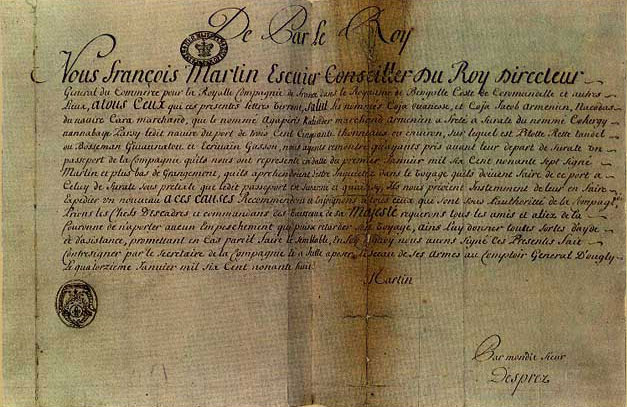 De Par le Roy
Nous François Martin Escuier Conseiller Du Roy Directeur
General du Commerce pour la Royalle Compagnie de France dans le Royaume de Bengalle Coste de Coromandelle et autres
Lieux, a tous Ceux qui ces presentes lettres verront, Salut les nommés Coja ouanesse, et Coja Jacob Armenien, Nacodas
du navire Cara marchand, que le nommé Agapiris marchand Armenien a freté a Surate du nommé
ledit navire du port de trois Cent Cinquante thonneaux ou environ, Sur lequel est Pilotte
ou Bosseman et Ecrivain Gasson, nous ayant remontré quayants pris avant leur depart de Surate un
passeport de la Compagnie quils nous ont representé en datte du premier Janvier mil six Cent nonante sept Signé
Martin et plus bas de Grangemont, quils aprehendent destre Inquietez dans le Voyage quils doivent faire de ce port a
Celuy de Surate Sous pretexte que ledit passeport est Suranné et quainsy Ils nous prioient Instemment de leur en faire
Expedier un nouveau a ces causes Recommandons et Enjoignons a tous ceux qui sont sous l'authorité de la Compagnie
Prions les Chefs Descadres et commandans des Vaisseaux de Sa Majesté requerons tous les amis et aliez de la
Couronne de n'aporter aucun Empeschement qui puisse retarder Ses Voyage, ains luy donner toutes Sortes dayde
et dasistance, promettant en Cas pareil faire le Semblable, En foy dequoy nous avons Signé Ces Presentes fait
Contresigner par le Secretaire de la Compagnie et a Icelle aposer le Sceau de Ses Armes au Comptoir General D'ougly
Le quatorzieme Janvier mil six Cent nonante huit
Martin
Par mondit sieur
Desprez